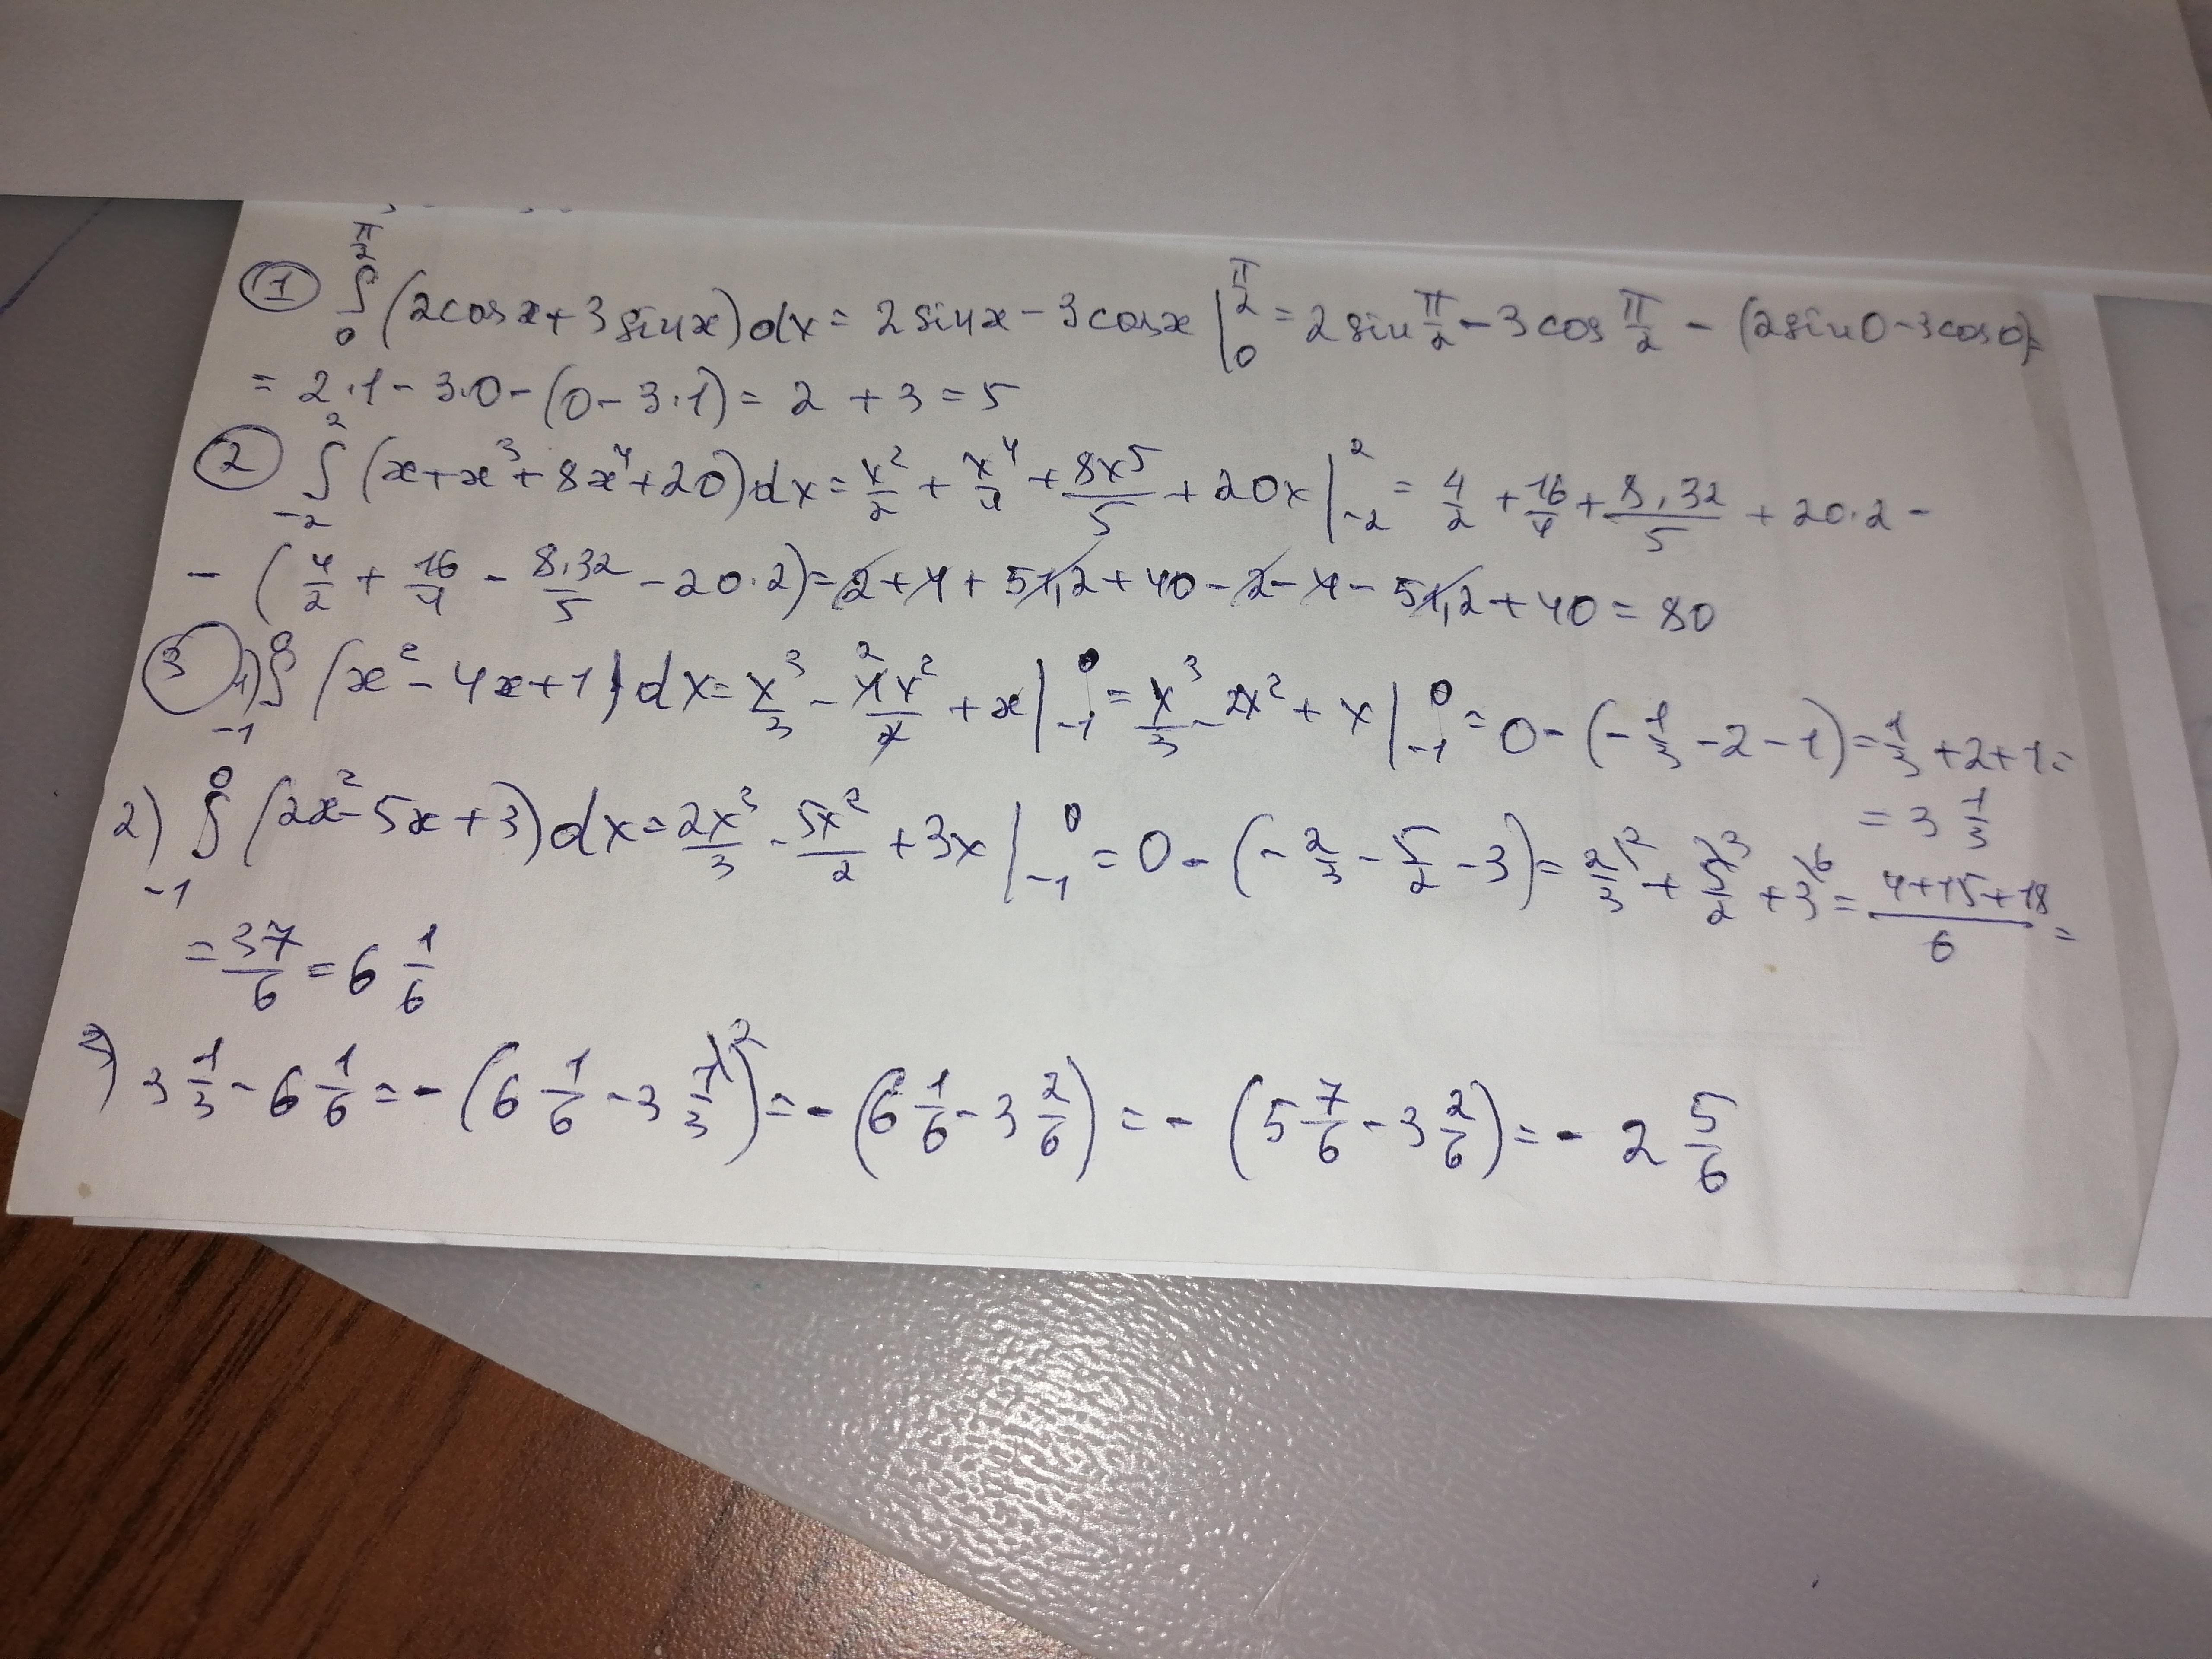 ① ∫₀^(π/2) (2cosx+3sinx)dx = 2sinx-3cosx |₀^(π/2) = 2sin π/2 - 3cos π/2 - (2sin0-3cos0)=
= 2·1-3·0-(0-3·1) = 2+3=5
② ∫₋₂² (x+x³+8x⁴+20)dx = x²/2 + x⁴/4 + 8x⁵/5 + 20x |₋₂² = 4/2 + 16/4 + 8·32/5 + 20·2 -
- (4/2 + 16/4 - 8·32/5 - 20·2) = 2+4+51,2+40-2-4-51,2+40=80
③ 1) ∫₋₁⁰ (x²-4x+1)dx = x³/3 - 4x²/2 + x |₋₁⁰ = x³/3 - 2x² + x |₋₁⁰ = 0-(-1/3-2-1) = 1/3+2+1=
= 3 1/3
2) ∫₋₁⁰ (2x²-5x+3)dx = 2x³/3 - 5x²/2 + 3x |₋₁⁰ = 0-(-2/3-5/2-3) = 2/3\2 + 5/2\3 + 3\6 = (4+15+18)/6 =
= 37/6 = 6 1/6
3 1/3 - 6 1/6 = -(6 1/6 - 3 1/3\2) = -(6 1/6 - 3 2/6) = -(5 7/6 - 3 2/6) = -2 5/6